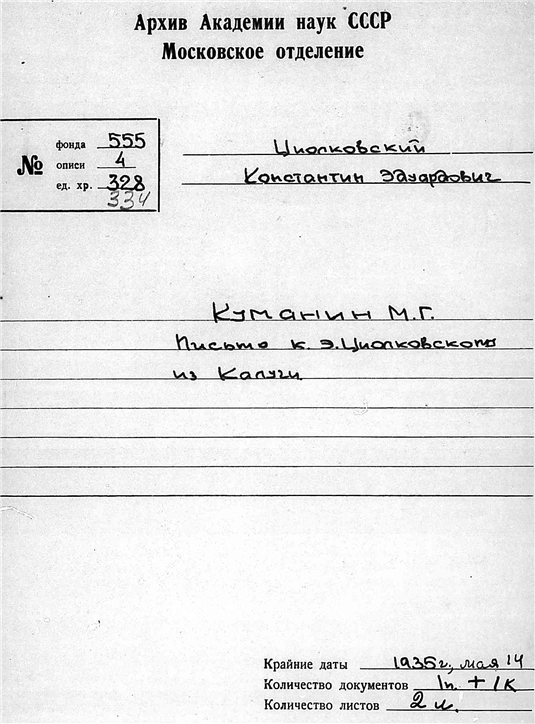 Архив Академии наук СССР
Московское отделение
№
фонда 555
описи 4
ед. хр. 328
334
Циолковский
Константин Эдуардович
Куманин М.Г.
Письмо К.Э.Циолковского
из Калуги
Крайние даты 1935г, мая 14
Количество документов 1п. + 1К
Количество листов 2 л.